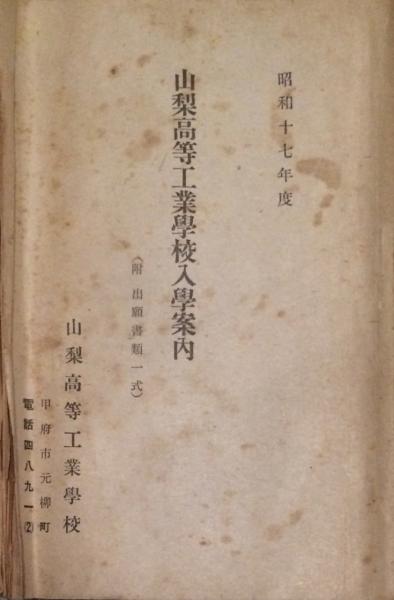 昭和十七年度
山梨高等工業學校入學案內
(附 出願書類一式)
山梨高等工業學校
甲府市元柳町
電話四八九一(2)